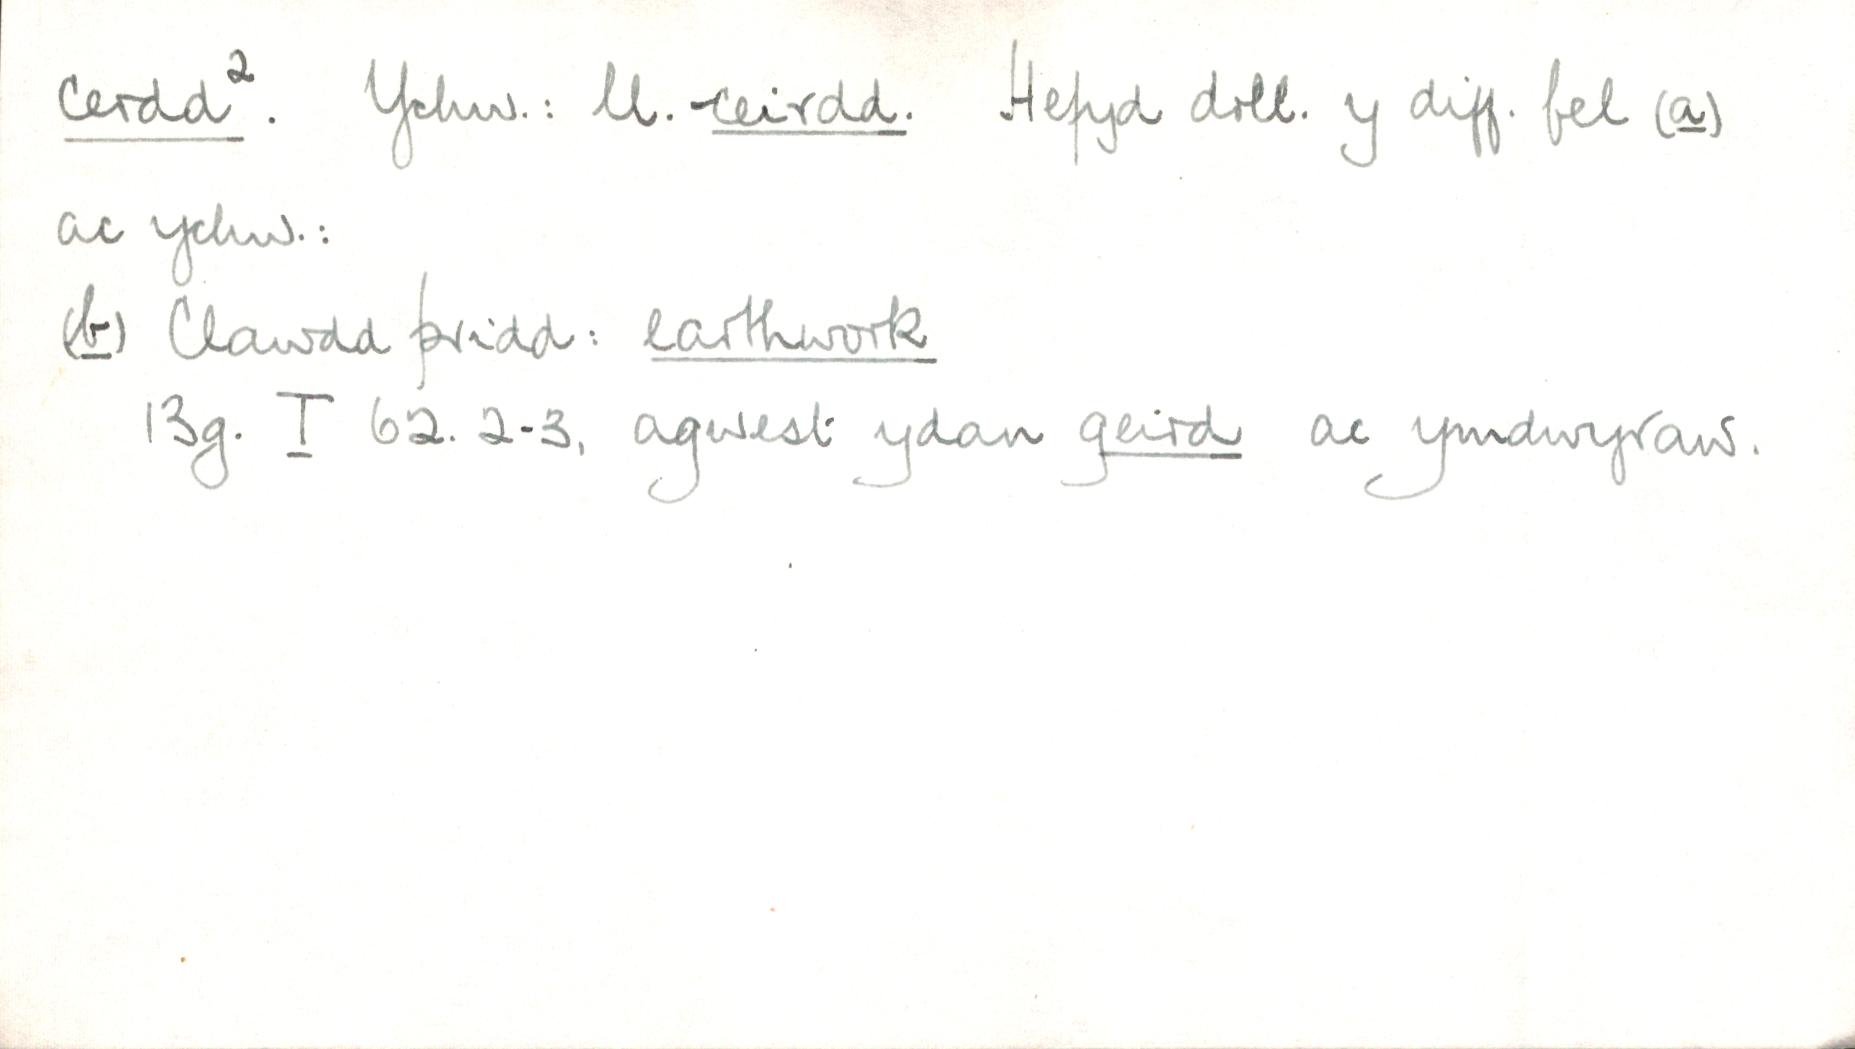 cerdd². Ychw.: ll. -ceirdd. Hefyd doll. y diff. fel (a)
ac ychw.:
(b) Clawdd pridd: earthwork
13g. T 62. 2-3, agwest ydan geird ac ymdwyraw.